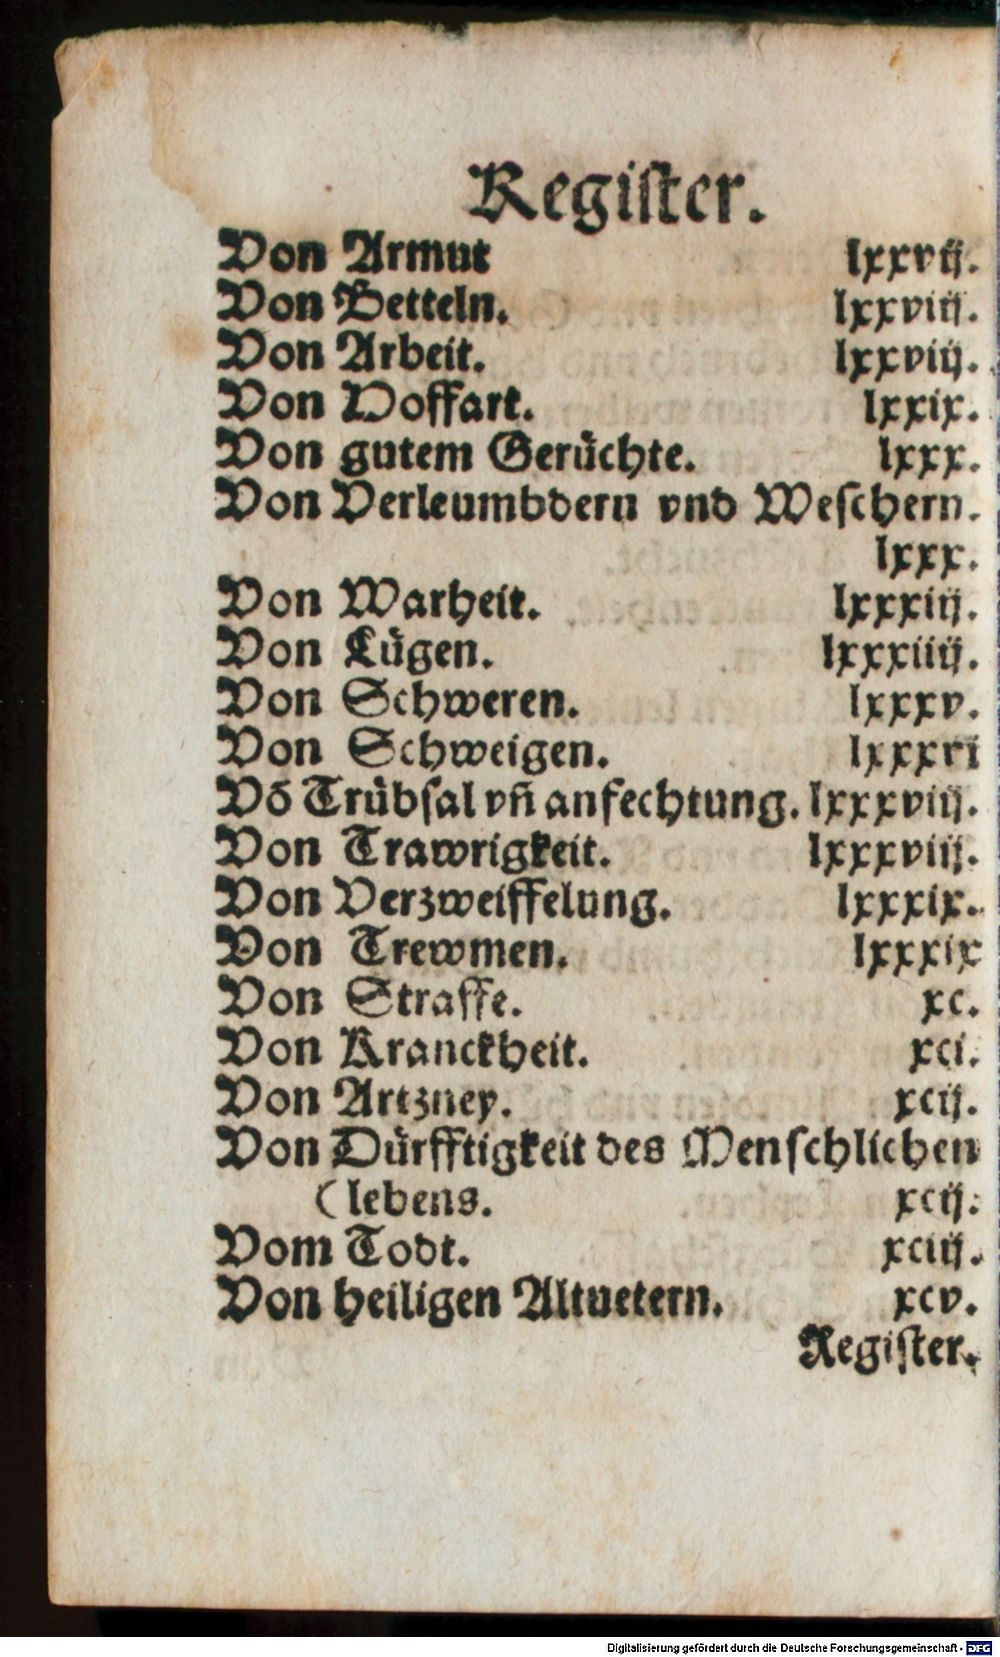 Register.
Von Armut lxxvij.
Von Betteln. lxxviij.
Von Arbeit. lxxviij.
Von Hoffart. lxxix.
Von gutem Gerüchte. lxxx.
Von Verleumbdern vnd Weschern.
lxxx.
Von Warheit. lxxxiij.
Von Lügen. lxxxiiij.
Von Schweren. lxxxv.
Von Schweigen. lxxxvi
Võ Trübsal vñ anfechtung. lxxxviij.
Von Trawrigkeit. lxxxviij.
Von Verzweiffelung. lxxxix.
Von Trewmen. lxxxix
Von Straffe. xc.
Von Kranckheit. xci.
Von Artzney. xcij.
Von Dürfftigkeit des Menschlichen
(lebens. xcij.
Vom Todt. xciij.
Von heiligen Altuetern. xcv.
Register.
Digitalisierung gefördert durch die Deutsche Forschungsgemeinschaft - DFG